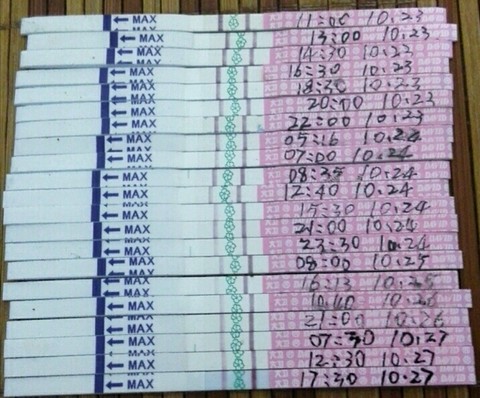 ← MAX 11:00 10.23
← MAX 13:00 10.23
← MAX 14:30 10.23
← MAX 16:30 10.23
← MAX 18:30 10.23
← MAX 20:00 10.23
← MAX 22:00 10.23
← MAX 05:16 10.24
← MAX 07:00 10.24
← MAX 08:35 10.24
← MAX 12:40 10.24
← MAX 15:30 10.24
← MAX 21:00 10.24
← MAX 23:30 10.24
← MAX 08:00 10.25
← MAX 16:13 10.25
← MAX
← MAX 21:00 10.26
← MAX 07:30 10.27
← MAX 12:30 10.27
← MAX 17:30 10.27